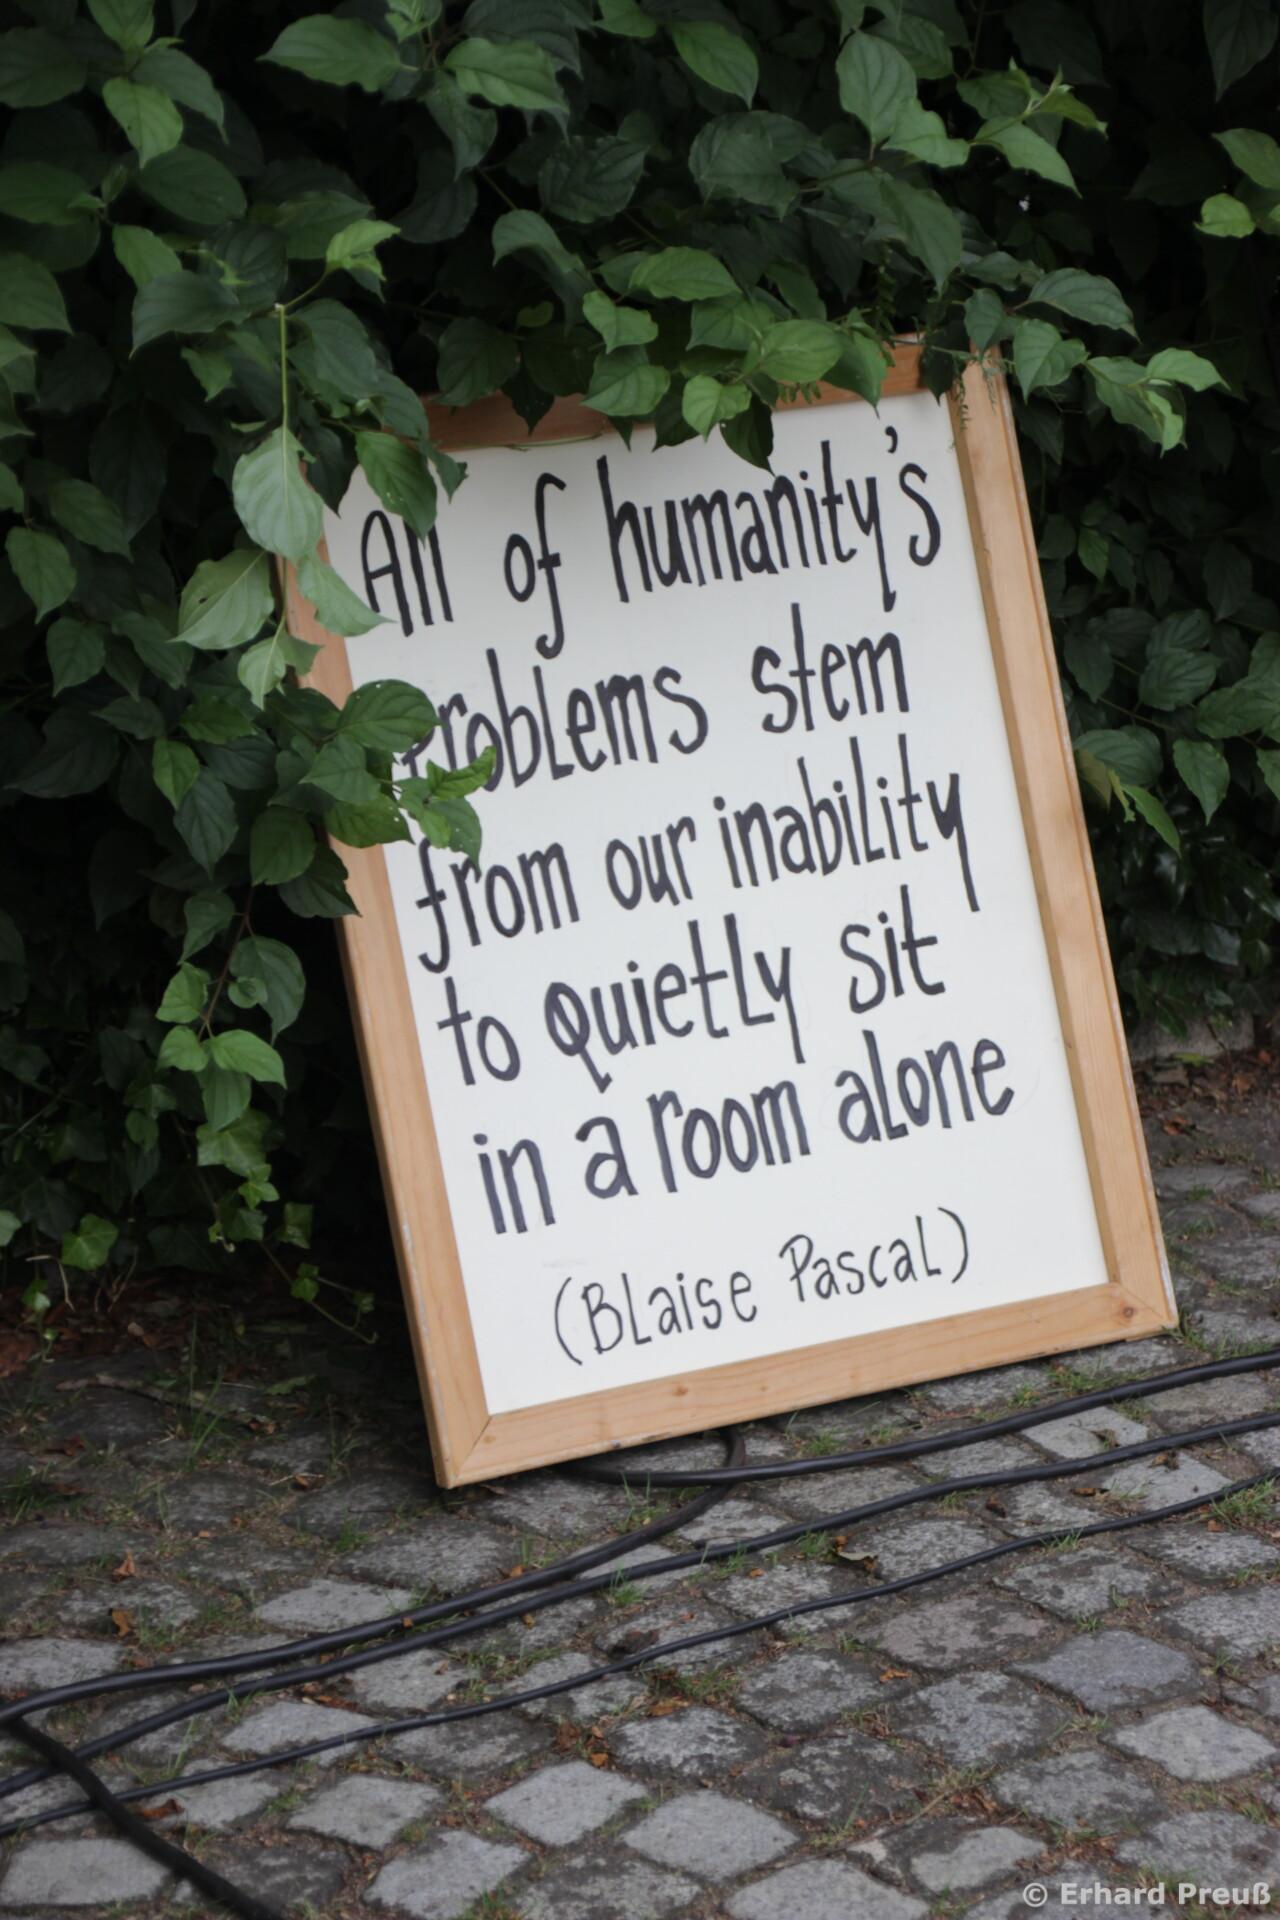 All of humanity's
Problems stem
from our inability
to quietly sit
in a room alone
(Blaise Pascal)
© Erhard Preuß